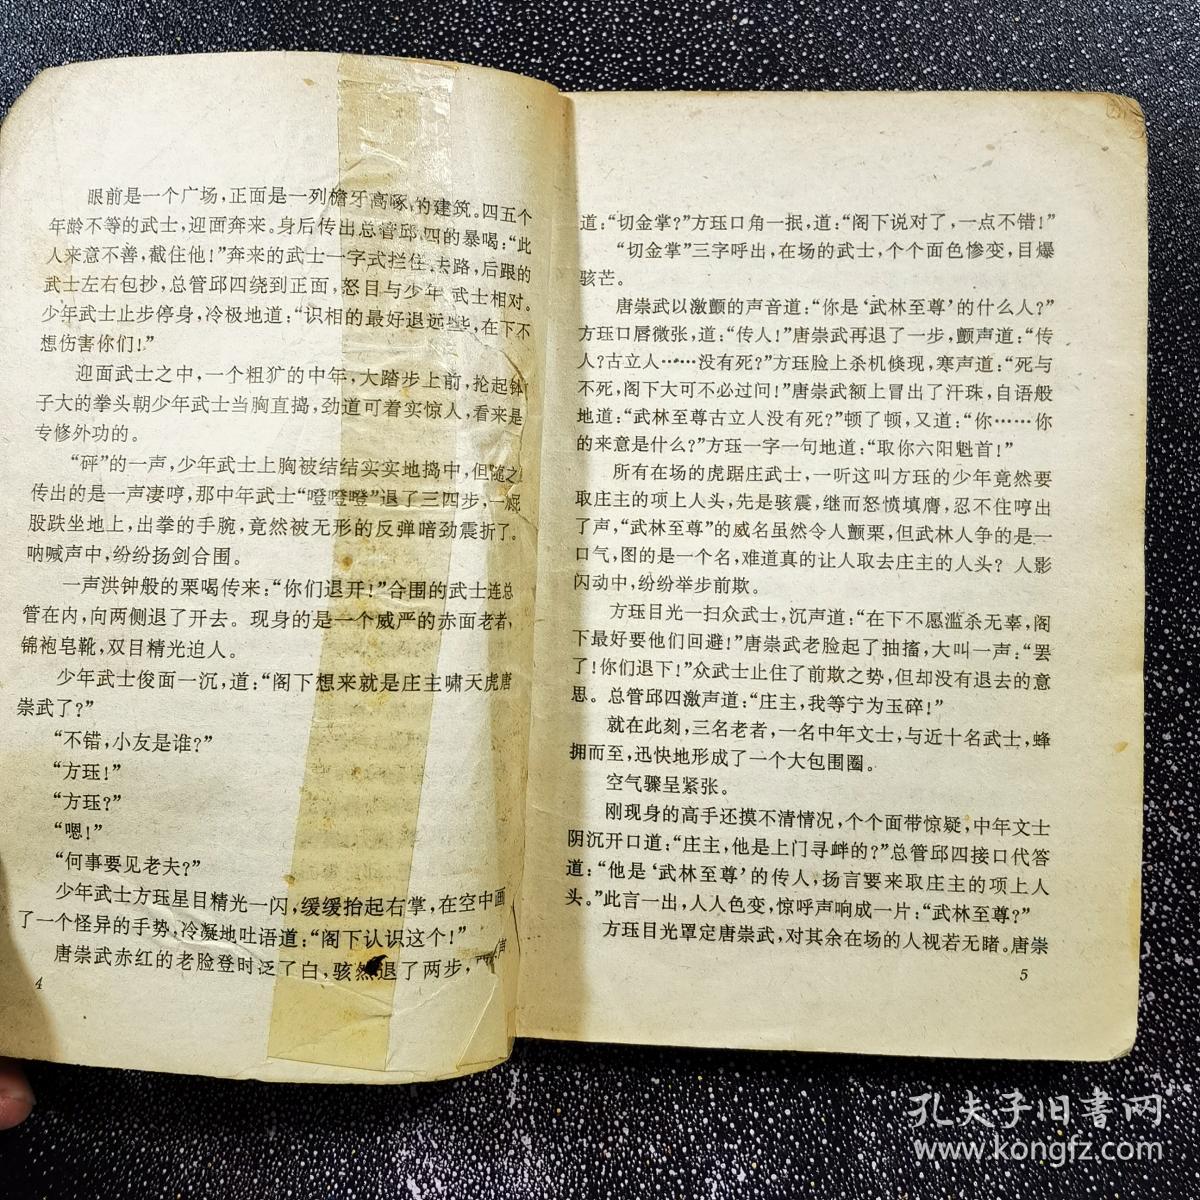 眼前是一个广场,正面是一列檐牙高啄,的建筑。四五个
年龄不等的武士,迎面奔来。身后传出总管邱四的暴喝:“此
人来意不善,截住他!”奔来的武士一字式拦住去路,后跟的
武士左右包抄,总管邱四绕到正面,怒目与少年武士相对。
少年武士止步停身,冷极地道:“识相的最好退远些,在下不
想伤害你们!”
迎面武士之中,一个粗犷的中年,大踏步上前,抡起钵
子大的拳头朝少年武士当胸直捣,劲道可着实惊人,看来是
专修外功的。
“砰”的一声,少年武士上胸被结结实实地捣中,但随之
传出的是一声凄哼,那中年武士“噔噔噔”退了三四步,一屁
股跌坐地上,出拳的手腕,竟然被无形的反弹暗劲震折了。
呐喊声中,纷纷扬剑合围。
一声洪钟般的栗喝传来:“你们退开!”合围的武士连总
管在内,向两侧退了开去。现身的是一个威严的赤面老者,
锦袍皂靴,双目精光迫人。
少年武士俊面一沉,道:“阁下想来就是庄主啸天虎唐
崇武了?”
“不错,小友是谁?”
“方珏!”
“方珏?”
“嗯!”
“何事要见老夫?”
少年武士方珏星目精光一闪,缓缓抬起右掌,在空中画
了一个怪异的手势,冷凝地吐语道:“阁下认识这个!”
唐崇武赤红的老脸登时泛了白,骇然退了两步,声
4
道:“切金掌?”方珏口角一抿,道:“阁下说对了,一点不错!”
“切金掌”三字呼出,在场的武士,个个面色惨变,目爆
骇芒。
唐崇武以激颤的声音道:“你是‘武林至尊’的什么人?”
方珏口唇微张,道:“传人!”唐崇武再退了一步,颤声道:“传
人?古立人……没有死?”方珏脸上杀机倏现,寒声道:“死与
不死,阁下大可不必过问!”唐崇武额上冒出了汗珠,自语般
地道:“武林至尊古立人没有死?”顿了顿,又道:“你……你
的来意是什么?”方珏一字一句地道:“取你六阳魁首!”
所有在场的虎踞庄武士,一听这叫方珏的少年竟然要
取庄主的项上人头,先是骇震,继而怒愤填膺,忍不住哼出
了声,“武林至尊”的威名虽然令人颤栗,但武林人争的是一
口气,图的是一个名,难道真的让人取去庄主的人头?人影
闪动中,纷纷举步前欺。
方珏目光一扫众武士,沉声道:“在下不愿滥杀无辜,阁
下最好要他们回避!”唐崇武老脸起了抽搐,大叫一声:“罢
了!你们退下!”众武士止住了前欺之势,但却没有退去的意
思。总管邱四激声道:“庄主,我等宁为玉碎!”
就在此刻,三名老者,一名中年文士,与近十名武士,蜂
拥而至,迅快地形成了一个大包围圈。
空气骤呈紧张。
刚现身的高手还摸不清情况,个个面带惊疑,中年文士
阴沉开口道:“庄主,他是上门寻衅的?”总管邱四接口代答
道:“他是‘武林至尊’的传人,扬言要来取庄主的项上人
头。”此言一出,人人色变,惊呼声响成一片:“武林至尊?”
方珏目光罩定唐崇武,对其余在场的人视若无睹。唐崇
5
孔夫子旧书网
www.kongfz.com